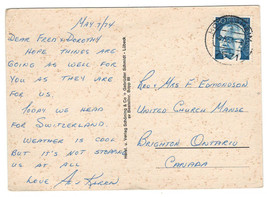 MAY 7/74
DEAR FERN & DOROTHY
HOPE THINGS ARE
GOING AS WELL FOR
YOU AS THEY ARE
FOR US.
TODAY WE HEAD
FOR SWITZERLAND.
WEATHER IS COOL
BUT IT'S NOT STOPPING
US AT ALL
LOVE KAREN
REV & MRS F EDMONDSON
UNITED CHURCH MANSE
BRIGHTON ONTARIO
CANADA